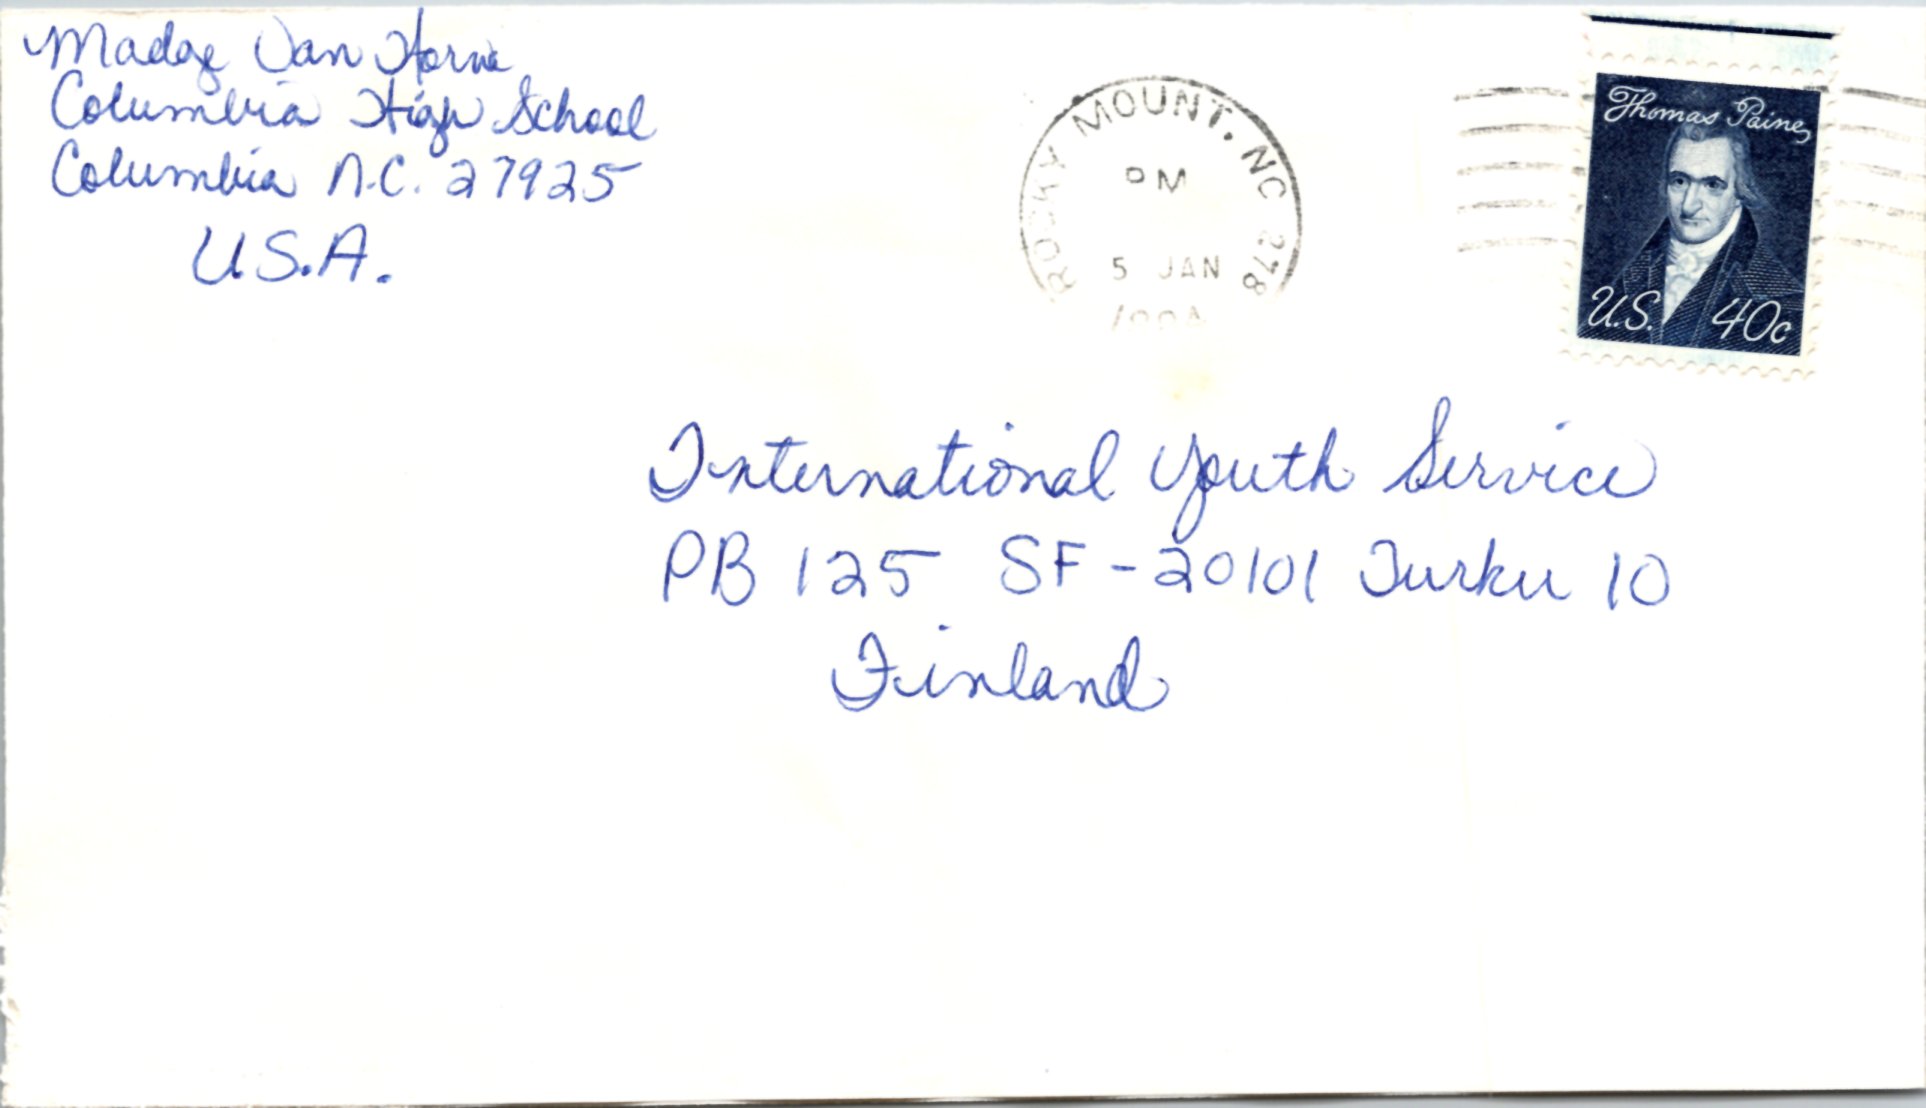 Madge Van Horne
Columbia High School
Columbia N.C. 27925
U.S.A.
ROCKY MOUNT, NC 278
PM
5 JAN
Thomas Paine
U.S. 40c
International Youth Service
PB 125 SF-20101 Turku 10
Finland